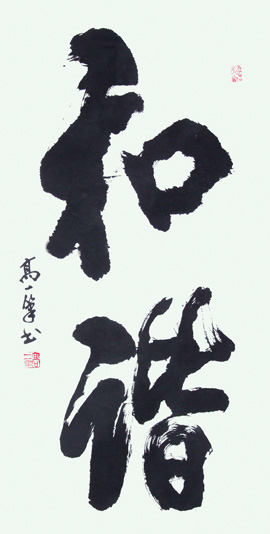 和谐
高一笔书